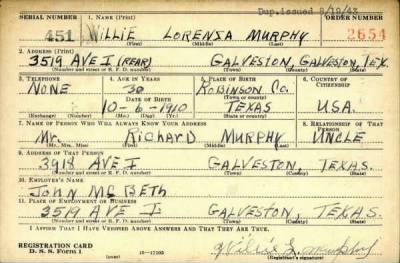 Dup. issued 8/19/43
SERIAL NUMBER 1. NAME (Print) ORDER NUMBER
451 WILLIE LORENSA MURPHY 2654
(First) (Middle) (Last)
2. ADDRESS (Print)
3519 AVE I (REAR) GALVESTON, GALVESTON, TEX.
(Number and street or R. F. D. number) (Town) (County) (State)
3. TELEPHONE 4. AGE IN YEARS 5. PLACE OF BIRTH 6. COUNTRY OF CITIZENSHIP
NONE 30 ROBINSON CO.
DATE OF BIRTH (Town or county)
10-6-1910 TEXAS USA.
(Exchange) (Number) (Mo.) (Day) (Yr.) (State or country)
7. NAME OF PERSON WHO WILL ALWAYS KNOW YOUR ADDRESS 8. RELATIONSHIP OF THAT PERSON
Mr. RICHARD MURPHY UNCLE
(Mr., Mrs., Miss) (First) (Middle) (Last)
9. ADDRESS OF THAT PERSON
3918 AVE I GALVESTON, TEXAS.
(Number and street or R. F. D. number) (Town) (County) (State)
10. EMPLOYER'S NAME
JOHN MCBETH
11. PLACE OF EMPLOYMENT OR BUSINESS
3519 AVE I GALVESTON, TEXAS.
(Number and street or R. F. D. number) (Town) (County) (State)
I AFFIRM THAT I HAVE VERIFIED ABOVE ANSWERS AND THAT THEY ARE TRUE.
REGISTRATION CARD
D. S. S. FORM 1 16-17105 Willie L. Murphy
(over) (Registrant's signature)